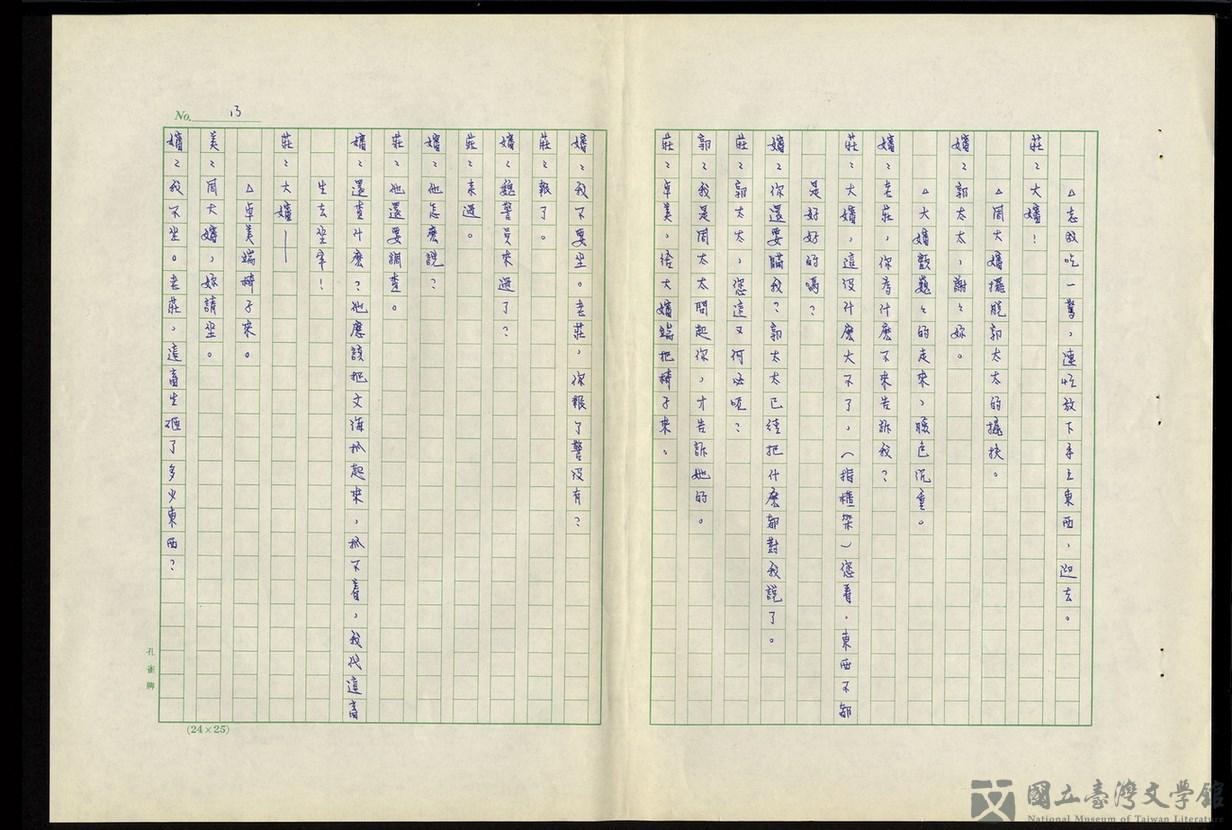 No. 13
△志敏吃一驚，連忙放下手上東西，迎去。
莊：大嬸！
△周大嬸擺脫郭太太的攙扶。
嬸：郭太太，謝謝妳。
△大嬸顫巍巍的走來，臉色沉重。
嬸：老莊，你為什麼不來告訴我？
莊：大嬸，這沒什麼大不了，（指櫃架）您看，東西不都
是好好的嗎？
嬸：你還要瞞我？郭太太已經把什麼都對我說了。
莊：郭太太，您這又何必呢？
郭：我是周太太問起你，才告訴她的。
莊：卓美，給大嬸端把椅子來。
嬸：我不要坐。老莊，你報了警沒有？
莊：報了。
嬸：魏警員來過了？
莊：來過。
嬸：他怎麼說？
莊：他還要調查。
嬸：還查什麼？他應該把文海抓起來，抓不着，我代這畜
生去坐牢！
莊：大嬸——
△卓美端椅子來。
美：周大嬸，妳請坐。
嬸：我不坐。老莊，這畜生砸了多少東西？
孔雀牌
(24×25)
國立臺灣文學館
National Museum of Taiwan Literature